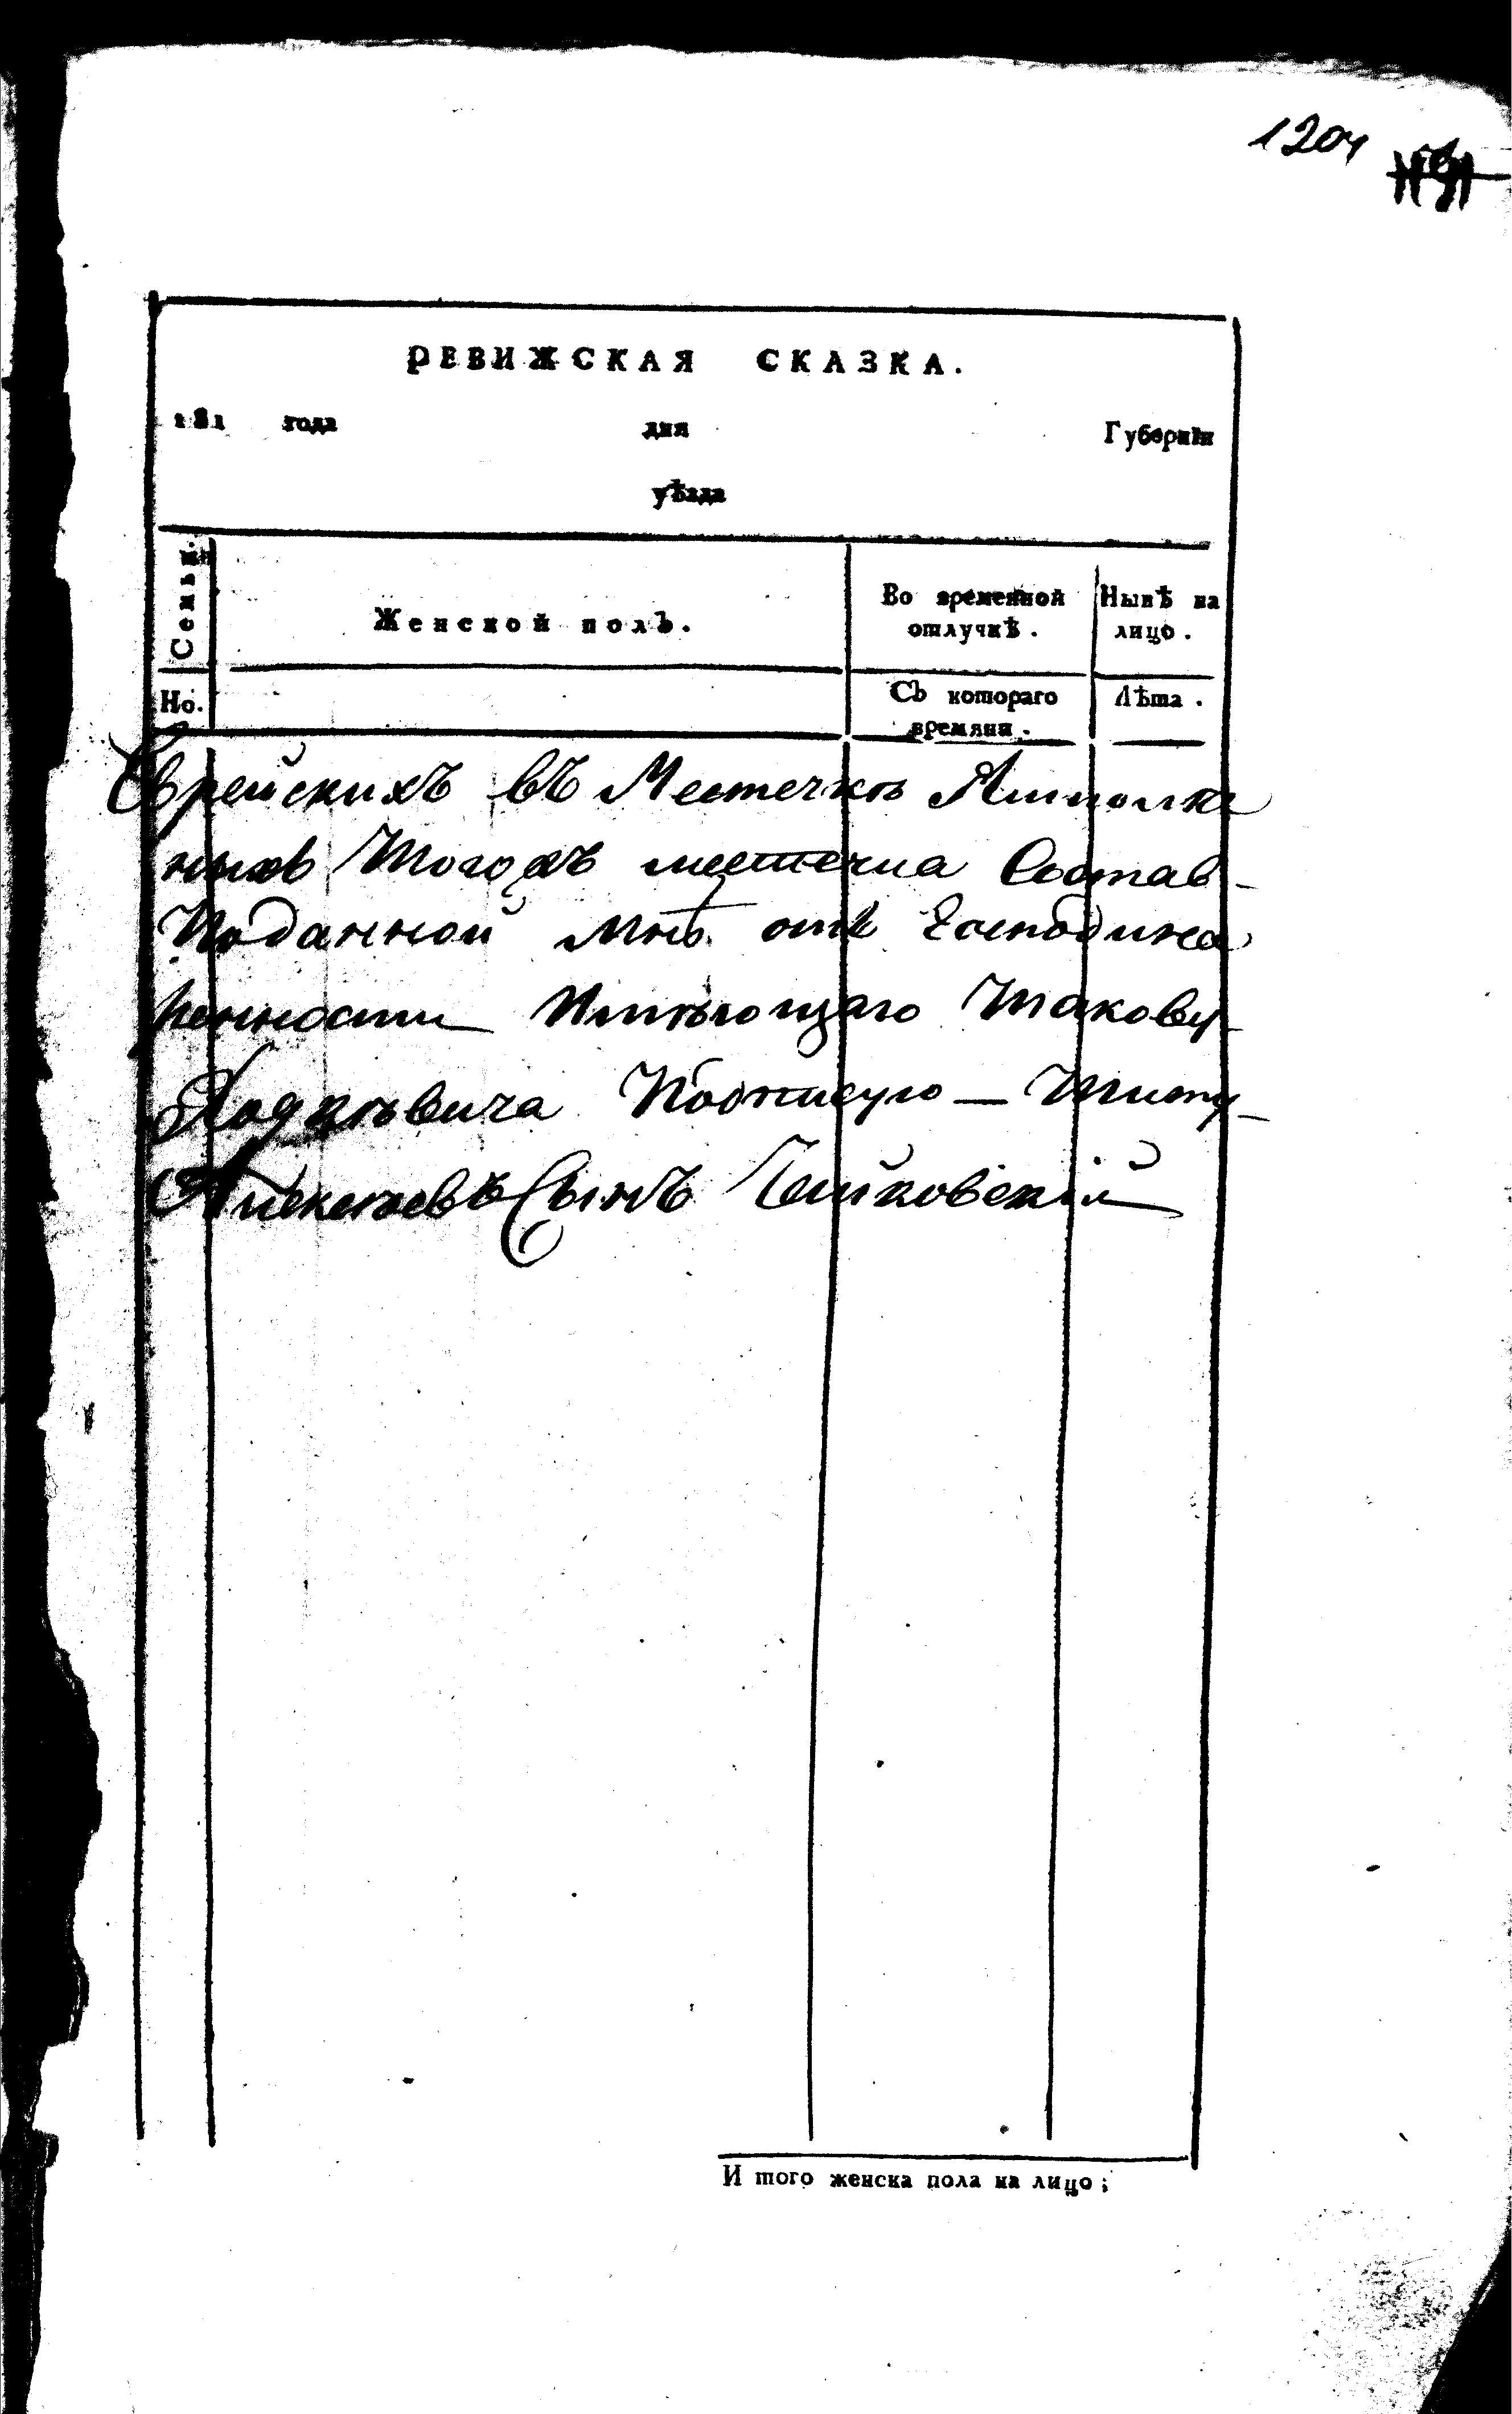 1204
РЕВИЖСКАЯ СКАЗКА.
181 года дня Губерніи
уѣзда
Семьи.
Женской полъ.
Во временной отлучкѣ.
Нынѣ на лицо.
Но.
Съ котораго времяни.
Лѣта.
Еврейскихъ въ Местечкѣ
ныхъ Тогожъ местечка Состав-
Поданной мнѣ отъ Господина
ренности Имѣющаго Такову-
Подписую — Титу-
Алексѣевъ Сынъ
И того женска пола на лицо;